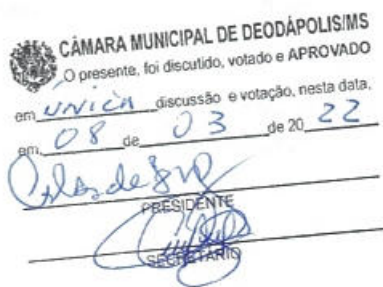 CÂMARA MUNICIPAL DE DEODÁPOLIS/MS
O presente, foi discutido, votado e APROVADO
em única discussão e votação, nesta data,
em, 08 de 03 de 20 22
PRESIDENTE
SECRETÁRIO